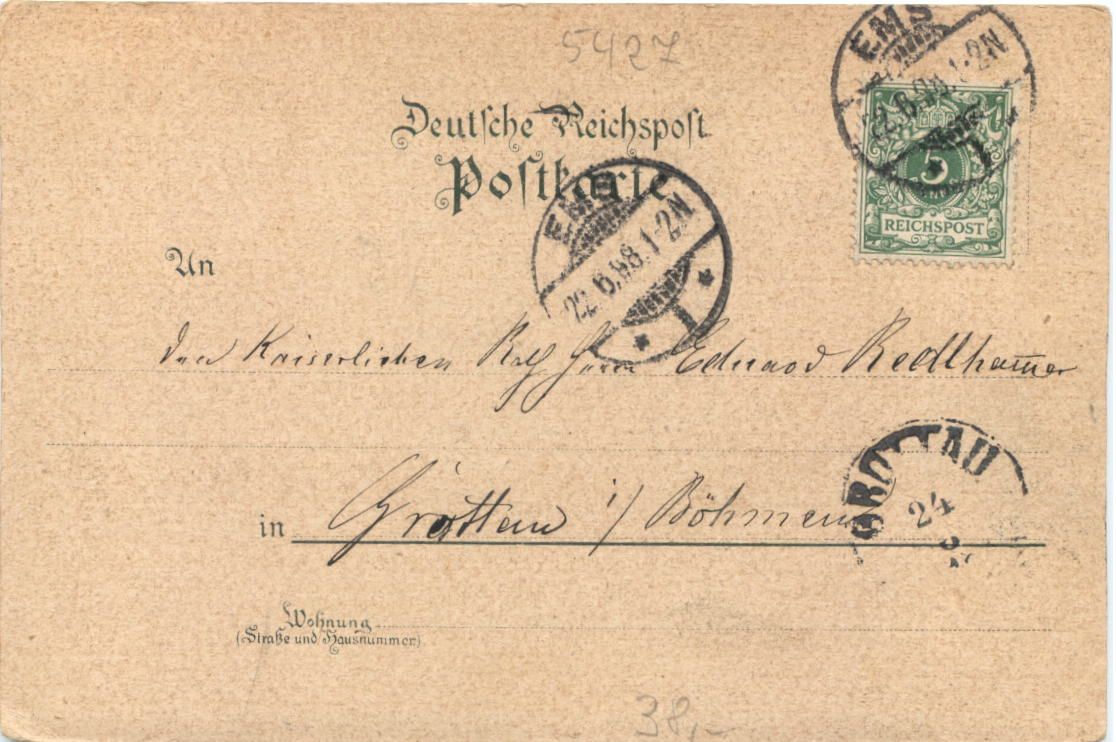 5427
Deutsche Reichspost
Postkarte
EMS
22.6.98.1-2N
1
5
REICHSPOST
EMS
22.6.98.1-2N
1
An
den Kaiserlichen Rath Herrn Eduard Redlhammer
in Grottau i/ Böhmen
GROTTAU
24
Wohnung
(Straße und Hausnummer)
38,-